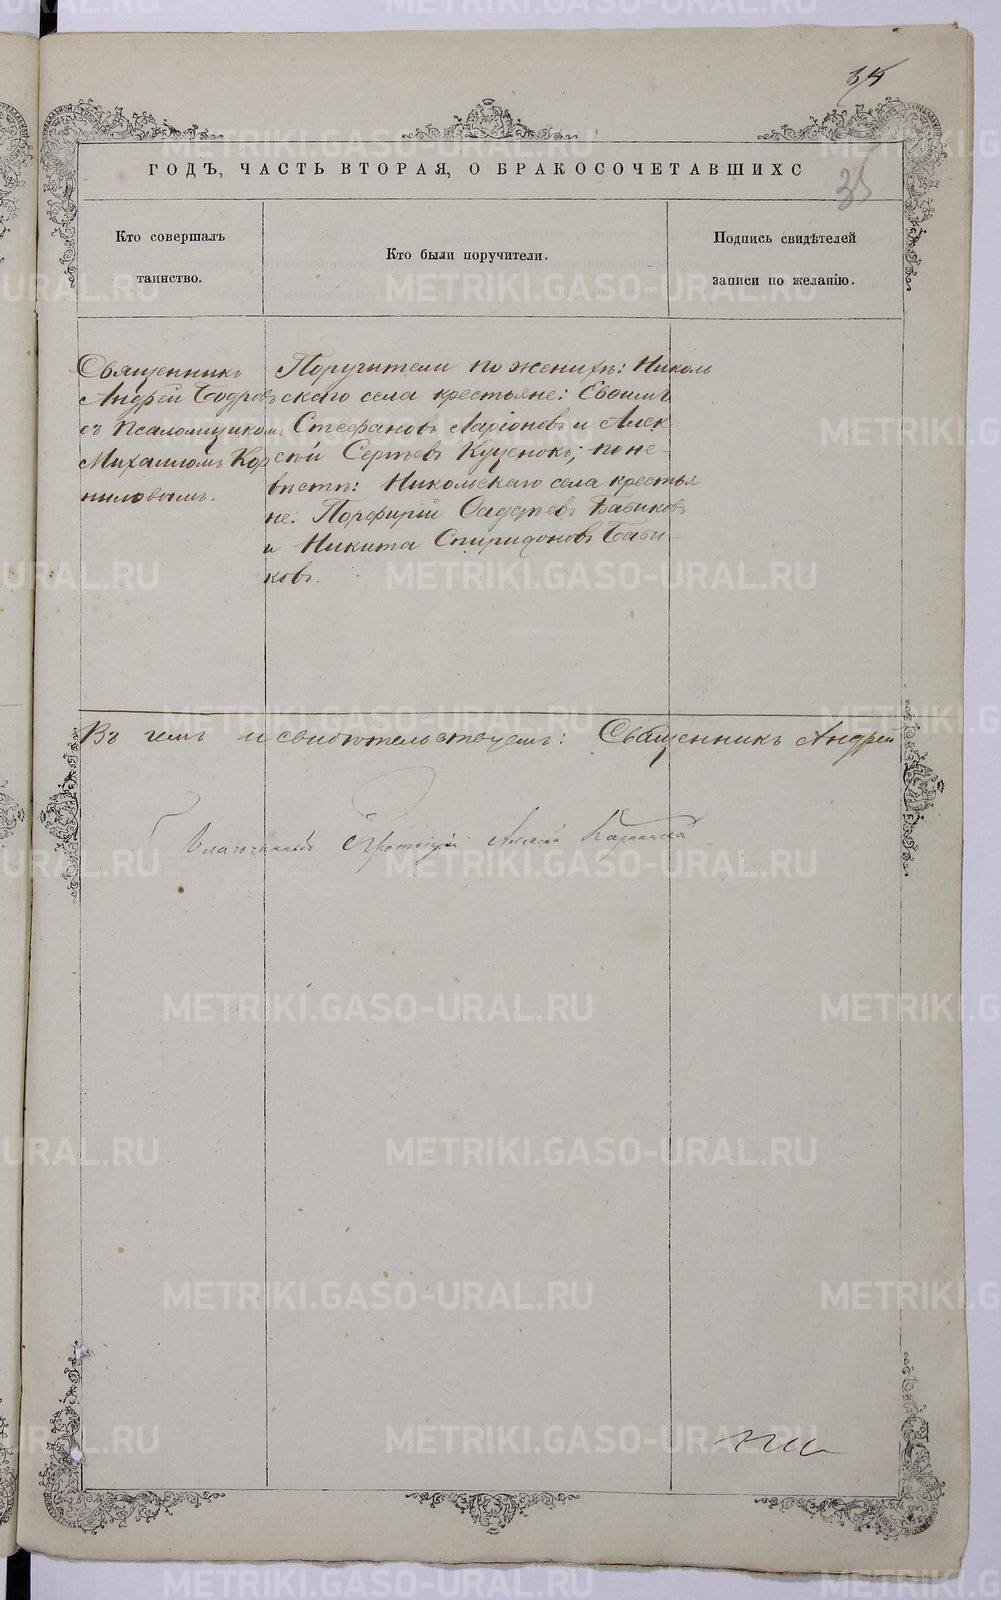 34
35
ГОДЪ, ЧАСТЬ ВТОРАЯ, О БРАКОСОЧЕТАВШИХС
Кто совершалъ
таинство.
Кто были поручители.
Подпись свидѣтелей
записи по желанію.
Священникъ
Андрей Бодровъ
съ Псаломщикомъ
Михаиломъ Кор
ниловымъ.
Поручители по женихѣ: Николь
скаго села крестьяне: Евѳимъ
Стефановъ Ларіоновъ и Алек
сѣй Сергѣевъ Куценокъ; по не-
вѣстѣ: Никольскаго села крестья
не: Порфирій Ѳаддѣевъ Бабиковъ
и Никита Спиридоновъ Баби-
ковъ.
Въ чемъ и свидѣтельствуемъ: Священникъ Андрей
Благочинный Протоіерей Алексій
METRIKI.GASO-URAL.RU